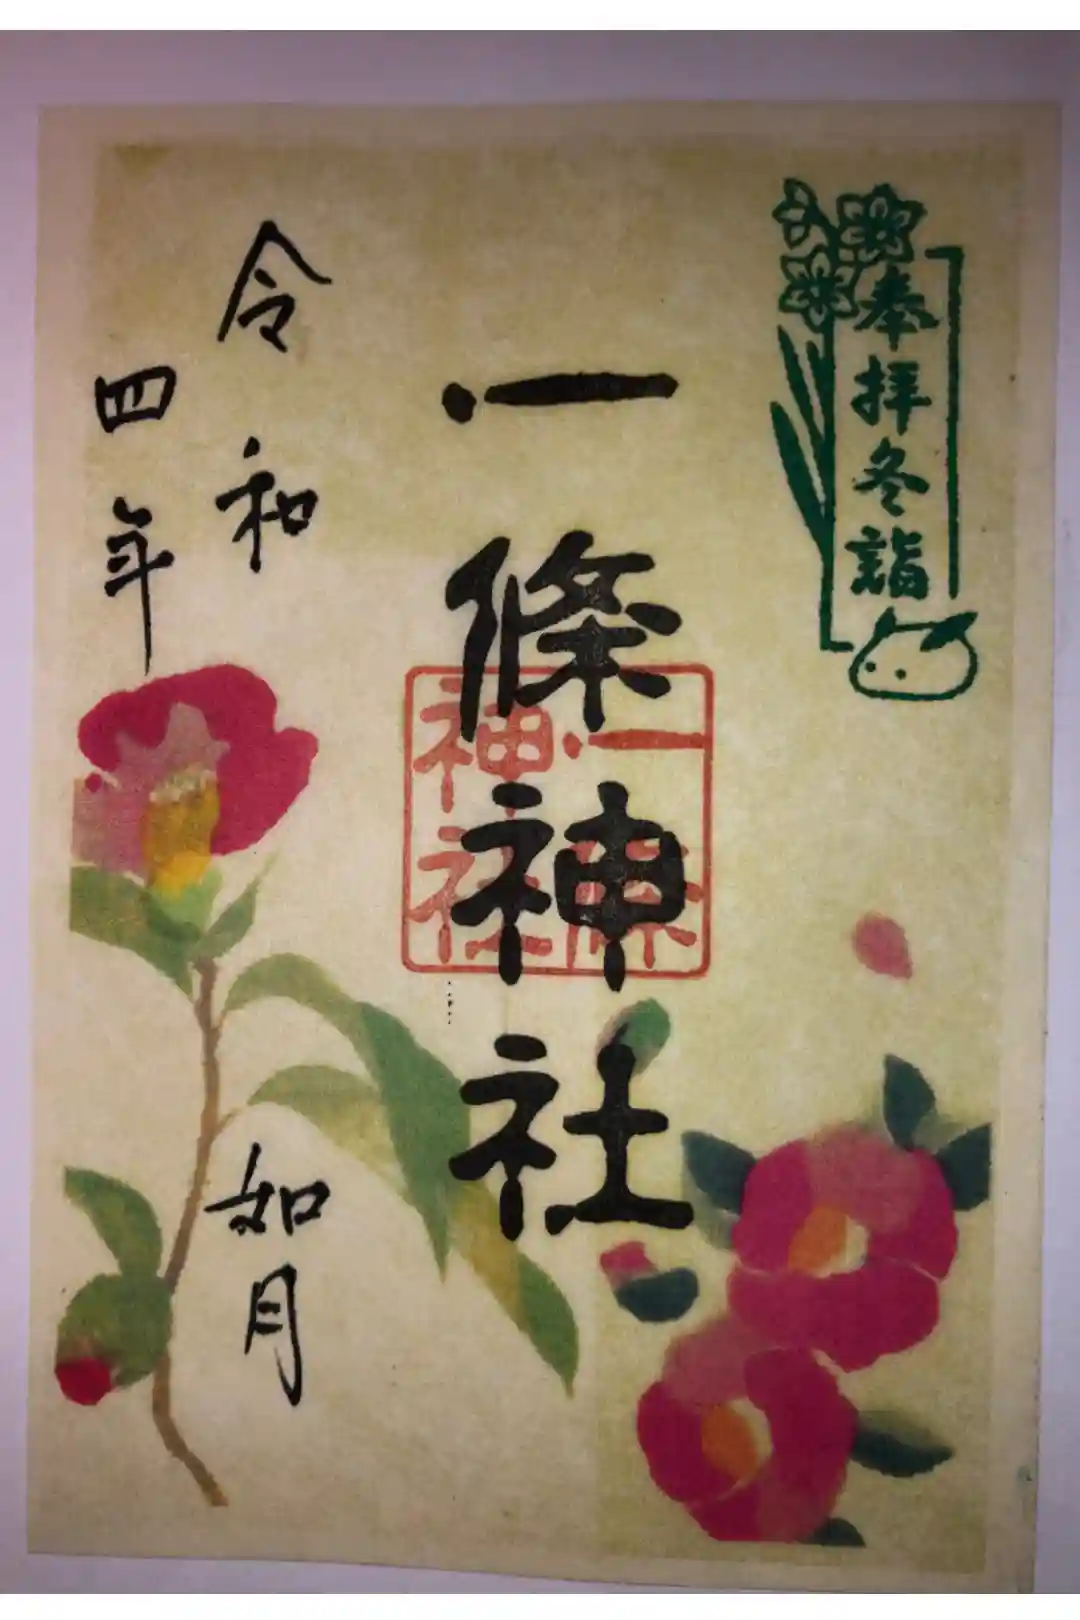 奉拝冬詣
一條神社
一條
神社
令和
四年
如月